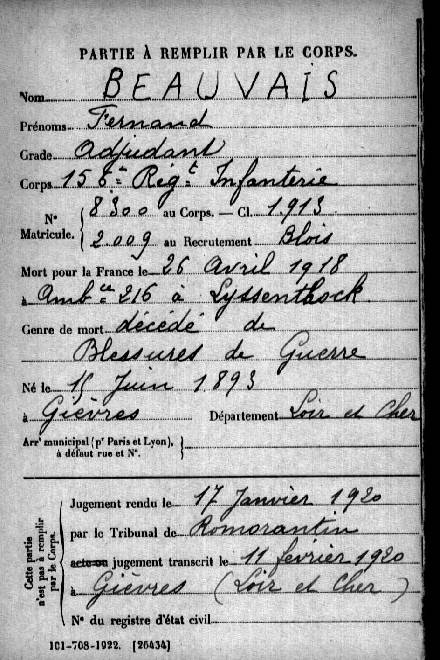 PARTIE À REMPLIR PAR LE CORPS.
Nom BEAUVAIS
Prénoms Fernand
Grade Adjudant
Corps 156e Régt Infanterie
N° Matricule. { 8300 au Corps. — Cl. 1913
2.009 au Recrutement Blois
Mort pour la France le 26 Avril 1918
à Ambce 216 à Lyssenthock
Genre de mort décédé de
Blessures de Guerre
Né le 15 Juin 1893
à Gièvres Département Loir et Cher
Arrt municipal (pr Paris et Lyon), }
à défaut rue et N°.
Cette partie n'est pas à remplir par le Corps.
Jugement rendu le 17 Janvier 1920
par le Tribunal de Romorantin
acte ou jugement transcrit le 11 février 1920
à Gièvres (Loir et Cher)
N° du registre d'état civil
101-708-1922. [26434]